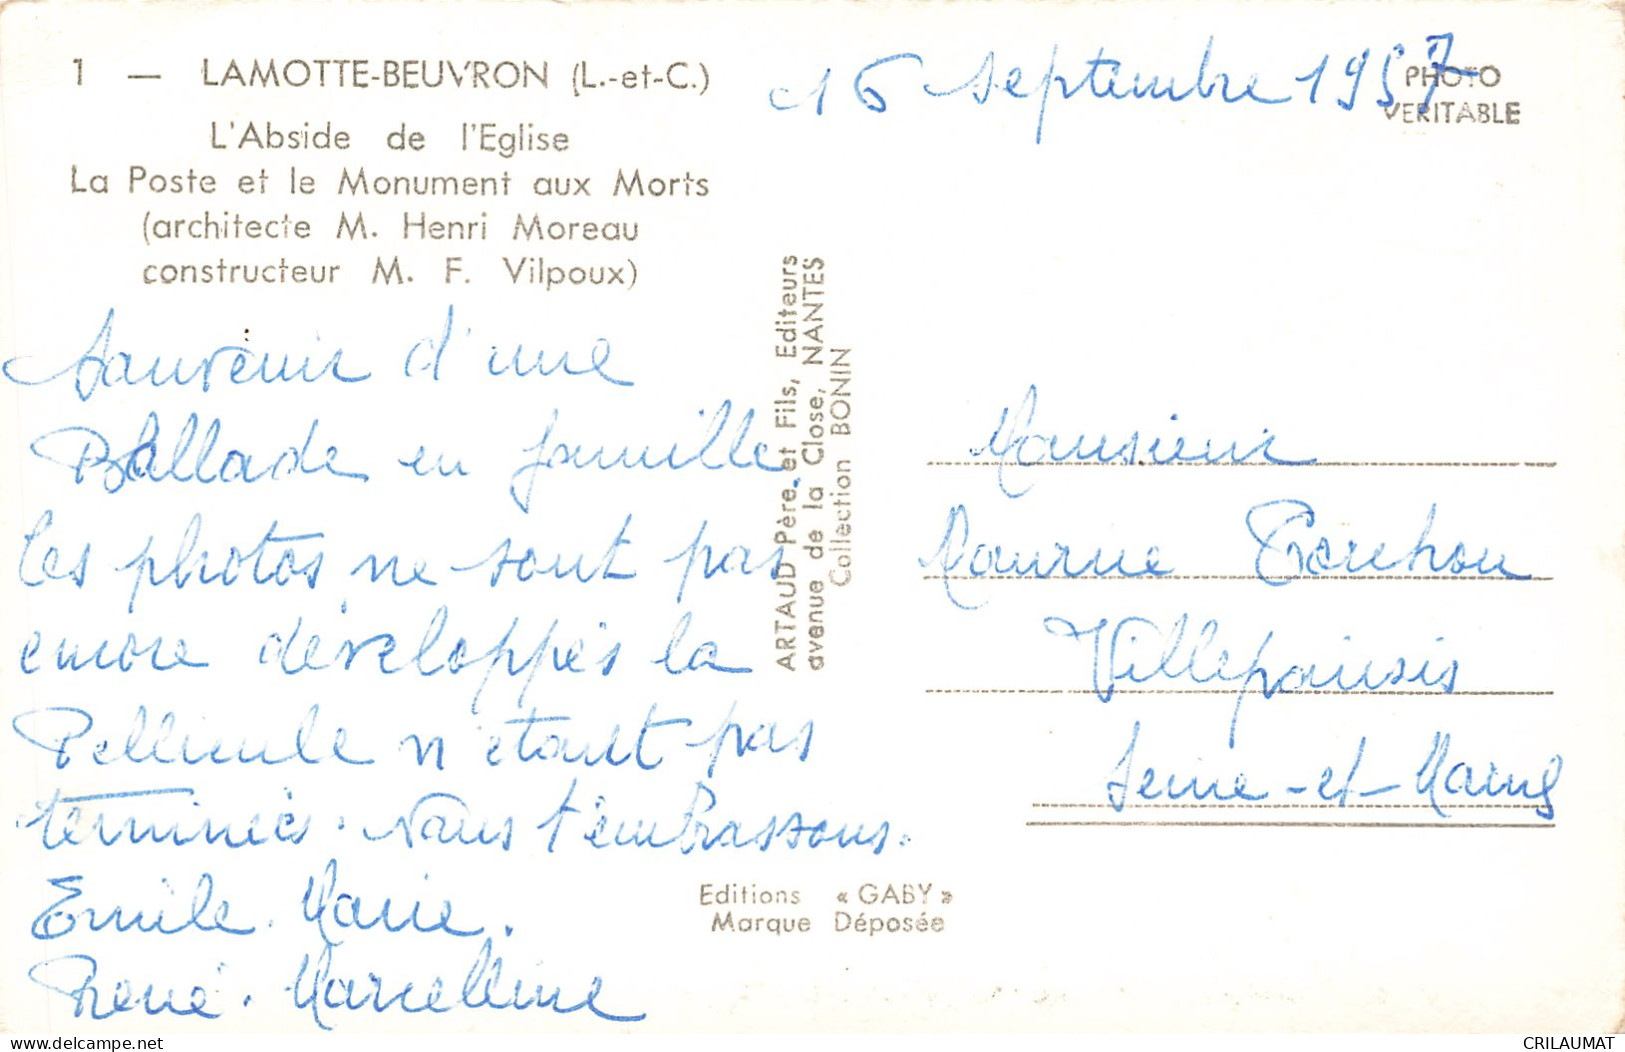 1 — LAMOTTE-BEUVRON (L.-et-C.)
L'Abside de l'Eglise
La Poste et le Monument aux Morts
(architecte M. Henri Moreau
constructeur M. F. Vilpoux)
16 septembre 1957
PHOTO
VERITABLE
Souvenir d'une
Ballade en famille
les photos ne sont pas
encore développés la
Pellicule n'étant pas
terminés. Nous t'embrassons.
Emile. Marie.
René. Marcelline
ARTAUD Père et Fils, Editeurs
avenue de la Close, NANTES
Collection BONIN
Monsieur
Maurice
Villeparisis
Seine-et-Marne
Editions « GABY »
Marque Déposée
www.delcampe.net
CRILAUMAT